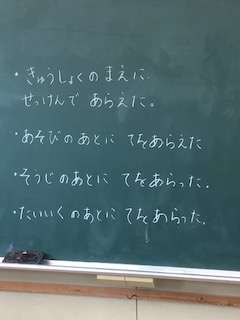 ・きゅうしょくのまえに
せっけんで あらえた。
・あそびのあとに てをあらえた
・そうじのあとに てをあらった.
・たいいくのあとに てをあらった.